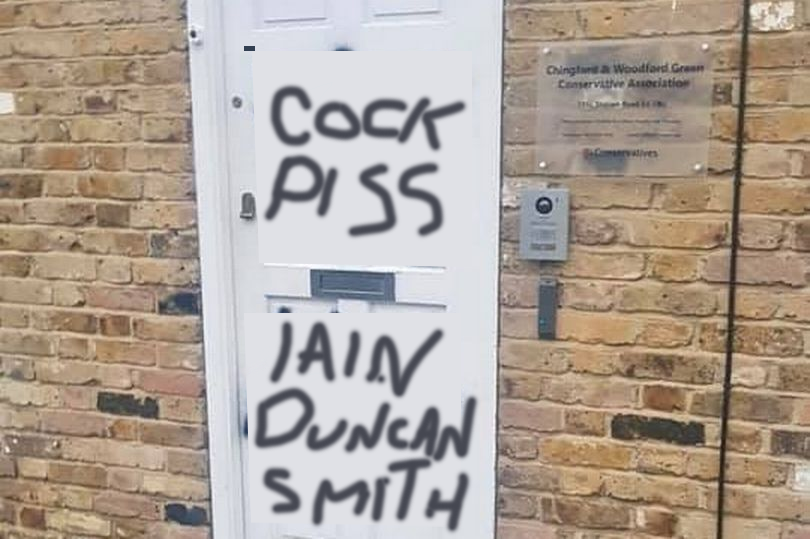 COCK
PISS
IAIN
DUNCAN
SMITH
Chingford & Woodford Green
Conservative Association
Conservatives